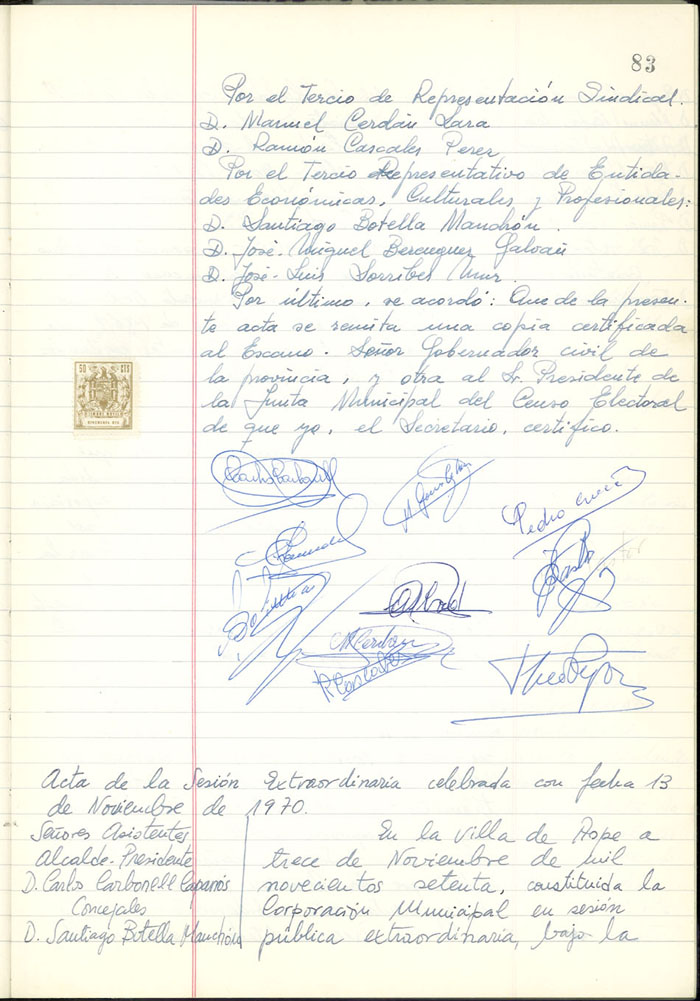 83
Por el Tercio de Representación Sindical.
D. Manuel Cerdán Lara
D. Ramón Cascales Perez
Por el Tercio Representativo de Entida-
des Económicas, Culturales y Profesionales:
D. Santiago Botella Manchón.
D. José-Miguel Berenguer Galvañ
D. José-Luis Sorribes Mur.
Por último, se acordó: Que de la presen-
te acta se remita una copia certificada
al Excmo. Señor Gobernador civil de
la provincia, y otra al Sr. Presidente de
la Junta Municipal del Censo Electoral
de que yo, el Secretario, certifico.
50 CTS
Pedro
Botella
Cerdan
R Cascales
Acta de la Sesión Extraordinaria celebrada con fecha 13
de Noviembre de 1970.
Señores Asistentes
Alcalde-Presidente
D. Carlos Carbonell Caparrós
Concejales
D. Santiago Botella Manchón
En la villa de Aspe a
trece de Noviembre de mil
novecientos setenta, constituida la
Corporación Municipal en sesión
pública extraordinaria, bajo la